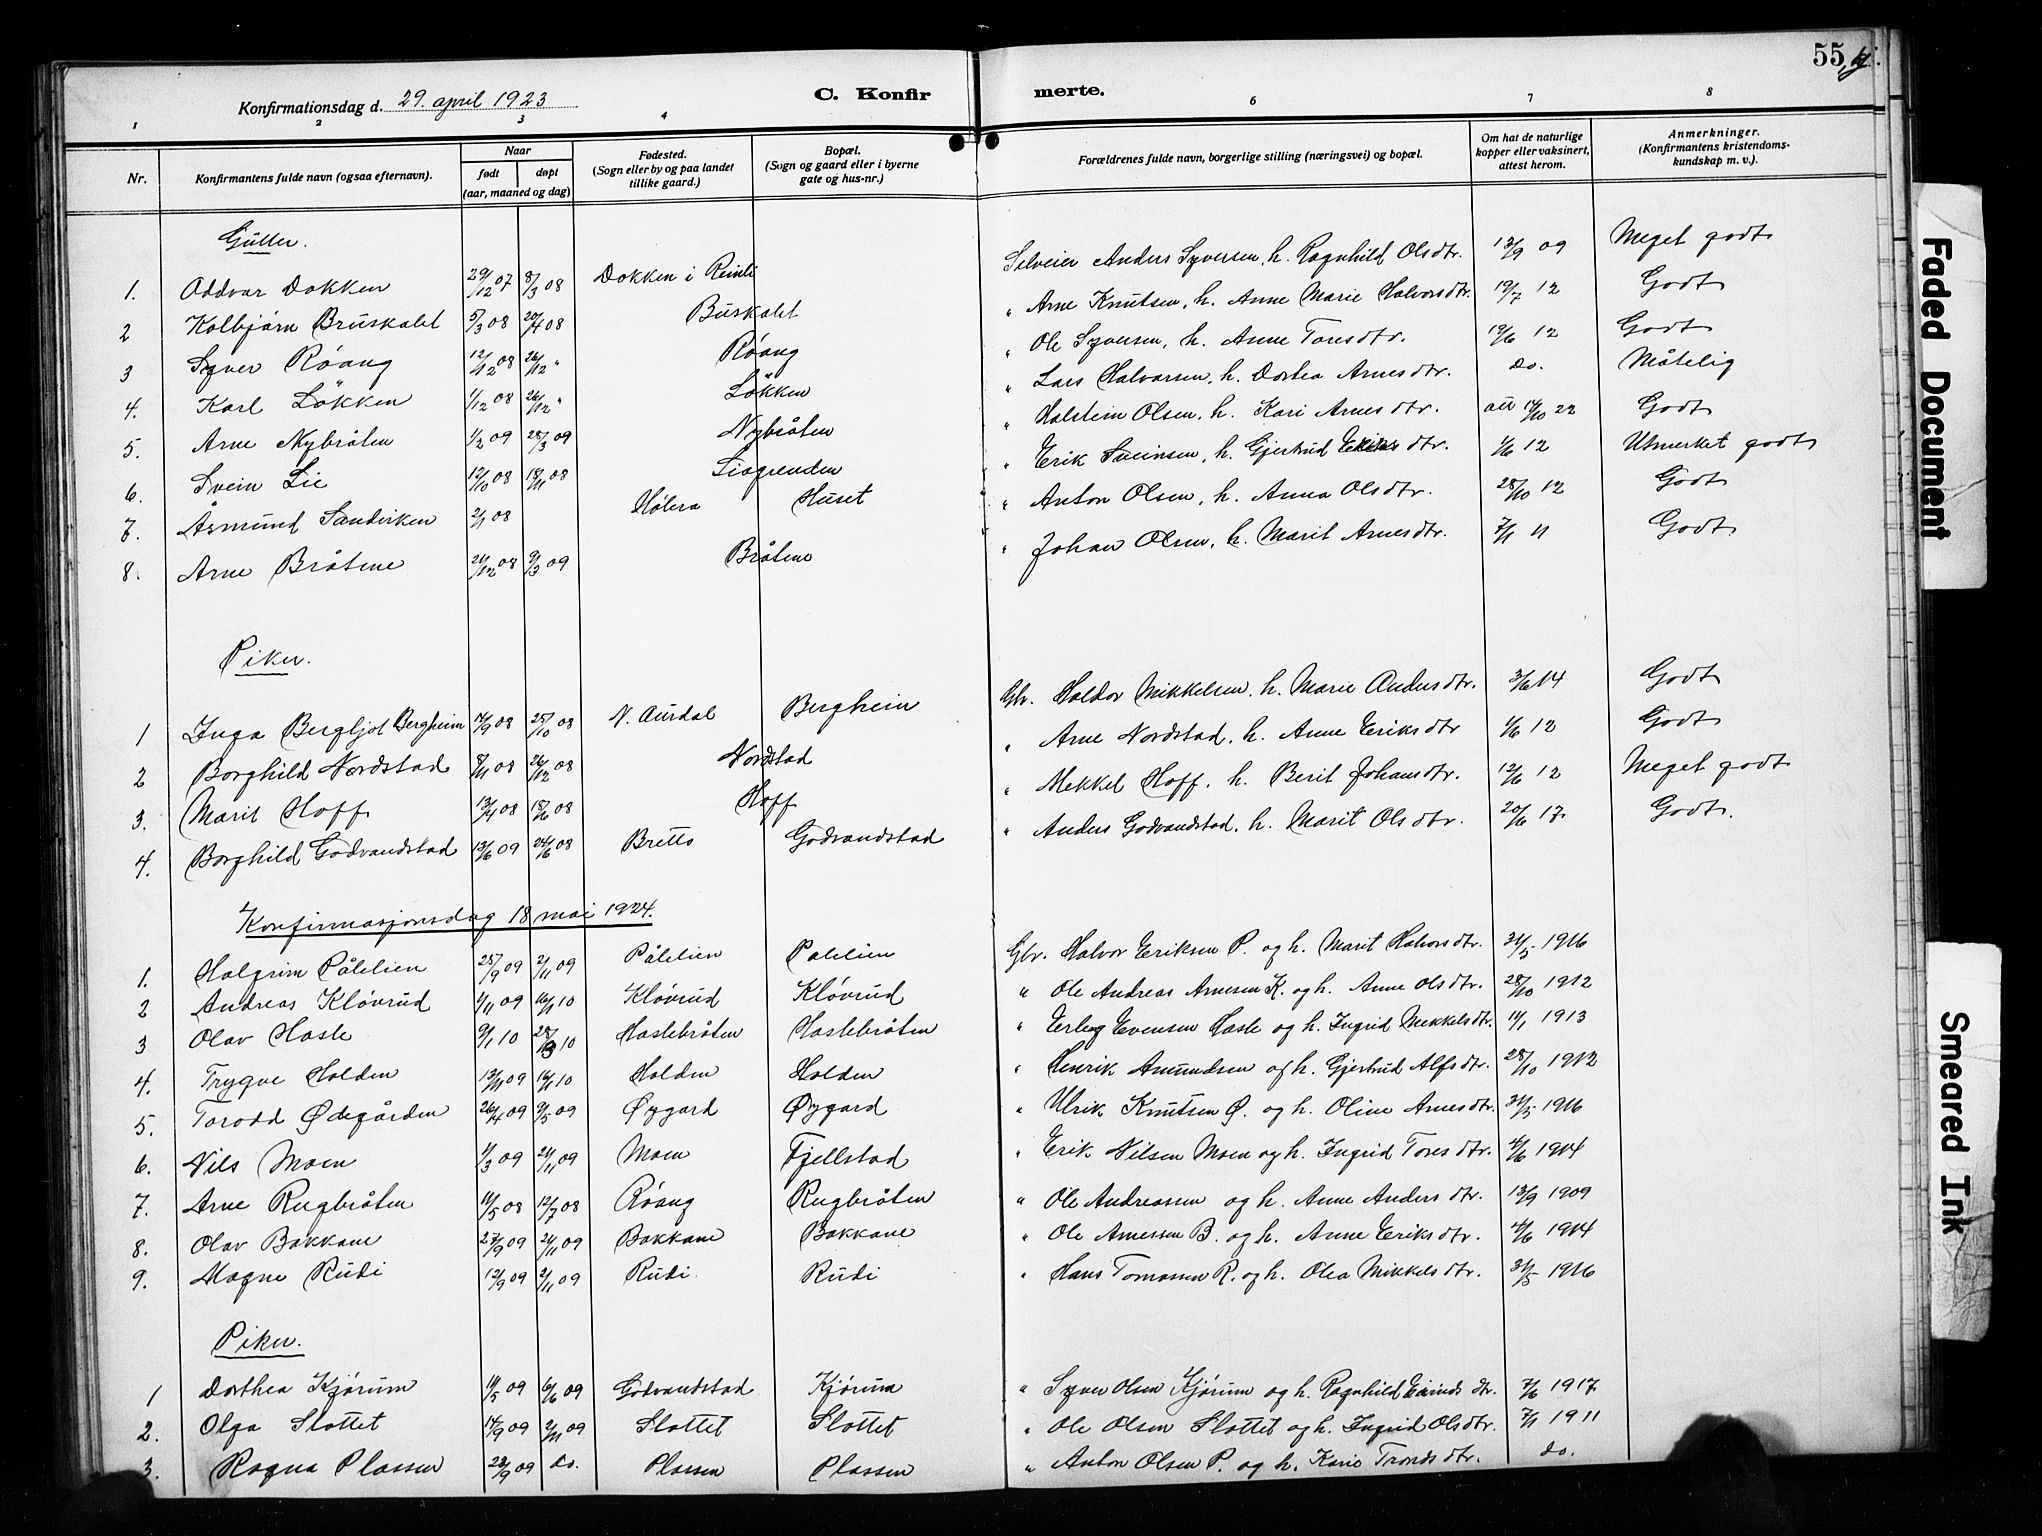 55
Konfirmationsdag d. 29. april 1923 C. Konfirmerte.
1 2 3 4 6 7 8
Nr. Konfirmantens fulde navn (ogsaa efternavn). Naar født døpt (aar, maaned og dag) Fødested. (Sogn eller by og paa landet tillike gaard.) Bopæl. (Sogn og gaard eller i byerne gate og hus-nr.) Forældrenes fulde navn, borgerlige stilling (næringsvei) og bopæl. Om hat de naturlige kopper eller vaksinert, attest herom. Anmerkninger. (Konfirmantens kristendomskundskap m. v.).
Gutter.
1. Oddvar Dokken 29/12 07 8/3 08 Dokken i Reinli Selveier Anders Syversen, h. Ragnhild Olsdtr. 13/9 09 Meget godt
2 Kolbjørn Bruskalet 5/3 08 20/4 08 Buskalet " Arne Knutsen, h. Anne Marie Halvorsdtr. 19/7 12 Godt
3 Syver Róang 12/12 08 26/12 " Róang " Ole Syversen, h. Anne Toresdtr. 19/6 12 Godt
4. Karl Løkken 1/12 08 26/12 " Løkken " Lars Halvorsen, h. Dortea Arnesdtr. do. Måtelig
5. Arne Nybråten 1/2 09 28/3 09 Nybråten " Halstein Olsen, h. Kari Arnesdtr. att 14/10 22 Godt
6. Svein Lie 12/10 08 18/11 08 Liagrenden " Erik Sveinsen, h. Gjertrud Eriksdtr. 1/6 12 Utmerket godt
7. Åsmund Sandviken 2/1 08 Hølera Huset " Anton Olsen, h. Anna Olsdtr. 28/10 12 Godt
8. Arne Bråtene 21/12 08 9/3 09 Bråtene " Johan Olsen, h. Marit Arnesdtr. 7/1 11 Godt
Piker.
1 Inga Bergljot Bergheim 14/9 08 25/10 08 N. Aurdal Berghein Gbr. Haldor Mikkelsen, h. Marie Andersdtr. 3/6 14 Godt
2 Borghild Nordstad 8/11 08 26/12 08 Nordstad " Arne Nordstad, h. Anne Eriksdtr 1/6 12 Godt
3. Marit Hoff 13/4 08 18/6 08 Hoff " Mekkel Hoff, h. Berit Johansdtr. 12/6 12 Meget godt
4. Borghild Godvandstad 13/6 09 24/6 08 Bretto Godvandstad " Anders Godvandstad, h. Marit Olsdtr. 20/6 17 Godt.
Konfirmasjonsdag 18 mai 1924.
1. Halgrim Pålelien 25/9 09 2/11 09 Pålelien Palelien Gbr. Halvor Eriksen P. og h. Marit Halvorsdtr. 31/5 1916
2 Andreas Kløvrud 1/11 09 16/1 10 Kløvrud Kløvrud " Ole Andreas Arnesen K. og h. Anne Olsdtr. 28/10 1912
3 Olav Hasle 9/1 10 28/3 10 Haslebråten Haslebråten " Erling Evensen Hasle og h. Ingrid Mekkelsdtr. 14/1 1913
4. Trygve Holden 13/11 09 16/1 10 Holden Holden " Henrik Amundsen og h. Gjertrud Alfsdtr. 28/10 1912
5. Torodd Ødegården 26/4 09 9/5 09 Øygard Øygard " Ulrik Knutsen Ø. og h. Oline Arnesdtr. 31/5 1916
6. Nils Moen 1/3 09 21/11 09 Moen Fjellstad " Erik Nilsen Moen og h. Ingrid Toresdtr. 4/6 1914
7. Arne Rugbråten 11/5 08 12/7 08 Róang Rugbråten " Ole Andreassen og h. Anne Andersdtr. 13/9 1909
8. Olav Bakkane 27/9 09 21/11 09 Bakkane Bakkane " Ole Arnessen B. og h. Anne Eriksdtr. 4/6 1914
9. Magne Rudi 12/9 09 2/11 09 Rudi Rudi " Hans Tomassen R. og h. Olea Mikkelsdtr. 31/5 1916
Piker.
1 Dorthea Kjørum 11/5 09 6/6 09 Godvandstad Kjørum " Syver Olsen Kjørum og h. Ragnhild Eivindsdtr. 7/6 1917
2. Olga Slottet 14/9 09 2/11 09 Slottet Slottet " Ole Olsen Slottet og h. Ingrid Olsdtr. 7/1 1911
3. Ragna Plassen 22/9 09 do. Plassen Plassen " Anton Olsen P. og h. Karie Trondsdtr. do.
Faded Document
Smeared Ink